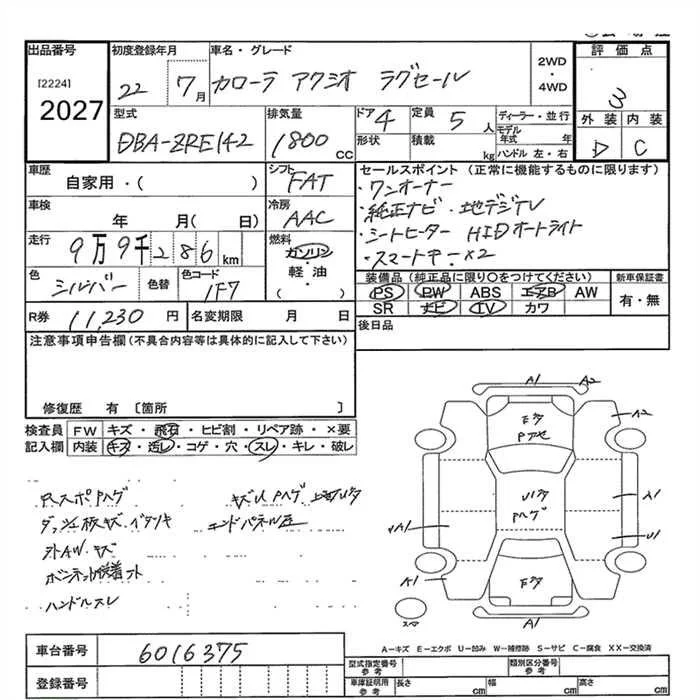 出品番号
[2224]
2027
初度登録年月
22 7月
車名・グレード
カローラ アクシオ ラグゼール
2WD
・
4WD
評価点
3
外装 内装
D C
型式
DBA-ZRE142
排気量
1800 CC
ドア 4
形状
定員 5人
積載 kg
ディーラー・並行
モデル年式 年
ハンドル 左・右
車歴
自家用・( )
車検
年 月( 日)
走行
9万9千286km
色
シルバー
色替
色コード
1F7
シフト
FAT
冷房
AAC
燃料
ガソリン
・
軽・油
( )
セールスポイント(正常に機能するものに限ります)
・ワンオーナー
・純正ナビ・地デジTV
・シートヒーター HIDオートライト
・スマートキー×2
装備品(純正品に限り○をつけてください)
PS PW ABS エアB AW
SR ナビ TV カワ
新車保証書
有・無
後日品
R券 11,230 円
名変期限 月 日
注意事項申告欄(不具合内容等は具体的に記入して下さい)
修復歴 有 [箇所 ]
検査員
記入欄
FW キズ・飛石・ヒビ割・リペア跡・×要
内装 キズ・汚レ・コゲ・穴・スレ・キレ・破レ
ダッシュ板キズ・イタミ
キズ
ハンドルスレ
A1 A2
A2
A1
U1
A1
A1
スマ
A-キズ E-エクボ U-凹み W-補修跡 S-サビ C-腐食 XX-交換済
車台番号 6016375
登録番号
型式指定番号
参考
類別区分番号
参考
車庫証明用
参考
長さ cm 幅 cm 高さ cm